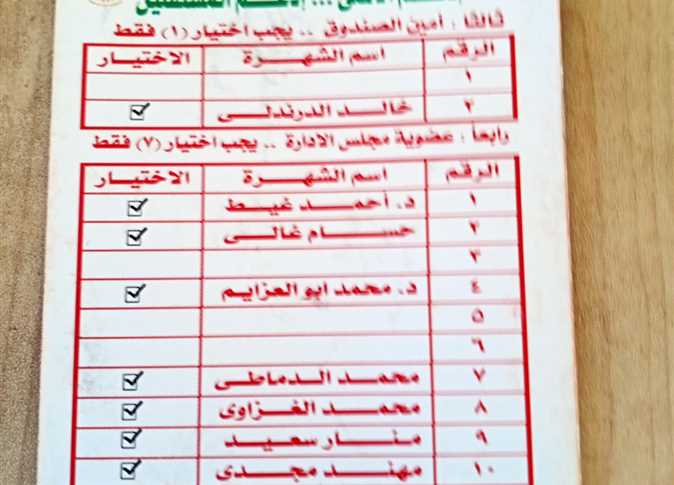 ثالثا : أمين الصندوق .. يجب اختيار (١) فقط
الرقم اسم الشهرة الاختيار
١
٢ خالد الدرندلى
رابعا : عضوية مجلس الادارة .. يجب اختيار (٧) فقط
الرقم اسم الشهرة الاختيار
١ د. أحمد غيط
٢ حسام غالى
٣
٤ د. محمد ابو العزايم
٥
٦
٧ محمد الدماطى
٨ محمد الغزاوى
٩ منار سعيد
١٠ مهند مجدى